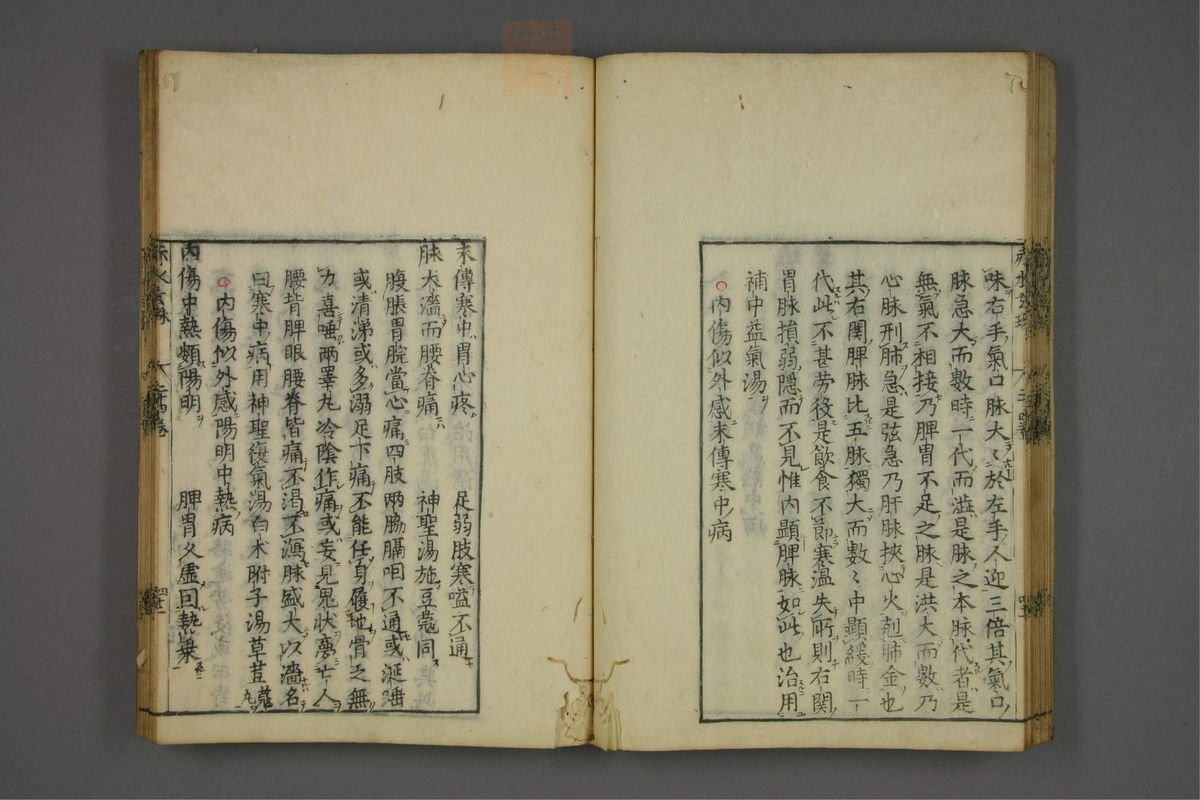 味右手氣口脉大〻於左手人迎三倍其氣口
脉急大而數時一代而澁是脉之本脉代者是
無氣不相接乃脾胃不足之脉是洪大而數乃
心脉刑肺急是弦急乃肝脉挾心火剋肺金也
其右関脾脉比五脉獨大而數〻中顕緩時一
代此不甚劳役是飲食不節寒温失所則右関
胃脉損弱隱而不見惟内顕脾脉如此也治用
補中益氣湯
○内傷似外感末傳寒中病
末傳寒中胃心疼 足弱肢寒嗌不通
脉大濇而腰脊痛 神聖湯施豆蔻同
腹脹胃脘當心痛四肢兩脇膈咽不通或涎唾
或清涕或多溺足下痛不能任身履地骨乏無
力喜唾兩睪丸冷陰作痛或妄見鬼状夢亡人
腰背脾眼腰脊皆痛不渴不瀉脉盛大以濇名
曰寒中病用神聖復氣湯白术附子湯草荳蔻丸
○内傷似外感陽明中熱病
内傷中熱類陽明 脾胃久虚因熱乗